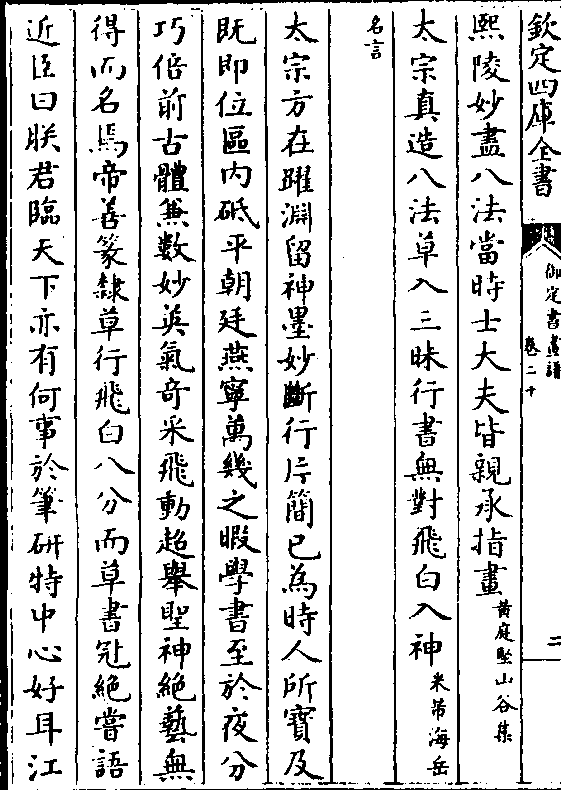 欽定四庫全書
御定書畫譜
卷二十
二
熙陵妙盡八法當時士大夫皆親承指畫黄庭堅山谷集
太宗真造八法草入三昧行書無對飛白入神米芾海岳
名言
太宗方在躍淵留神墨妙斷行片簡已為時人所寶及
既即位區内砥平朝廷燕寧萬幾之暇學書至於夜分
巧倍前古體兼數妙英氣奇采飛動超舉聖神絶藝無
得而名焉帝善篆隸草行飛白八分而草書冠絶嘗語
近臣曰朕君臨天下亦有何事於筆研特中心好耳江